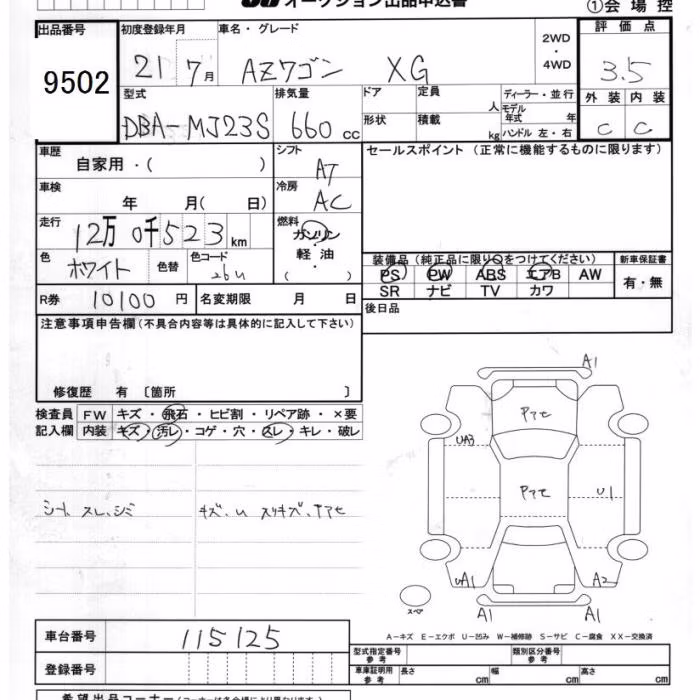 オークション出品申込書
①会場控
出品番号 9502
初度登録年月 21 7月
車名・グレード AZワゴン XG
2WD・4WD
評価点 3.5
外装 C 内装 C
型式 DBA-MJ23S
排気量 660cc
ドア 形状
定員 人 積載 kg
ディーラー・並行
モデル年式 年
ハンドル 左・右
車歴 自家用・( )
シフト AT
セールスポイント (正常に機能するものに限ります)
車検 年 月( 日)
冷房 AC
走行 12万0千523km
燃料 ガソリン・軽油・( )
色 ホワイト 色替 色コード 26U
装備品(純正品に限り○をつけてください)
PS PW ABS エアB AW
SR ナビ TV カワ
新車保証書 有・無
R券 10100円 名変期限 月 日
後日品
注意事項申告欄(不具合内容等は具体的に記入して下さい)
修復歴 有〔箇所 〕
検査員記入欄
FW キズ・飛石・ヒビ割・リペア跡・×要
内装 キズ・汚レ・コゲ・穴・スレ・キレ・破レ
シート スレ、シミ
キズ、U スリキズ、Pアセ
A1
Pアセ
UA3
Pアセ
U1
UA1
A2
スペア
A1
A1
A−キズ E−エクボ U−凹み W−補修跡 S−サビ C−腐食 XX−交換済
車台番号 115125
登録番号
型式指定番号 参考
類別区分番号 参考
車庫証明用 参考 長さ cm 幅 cm 高さ cm
希望出品コーナー